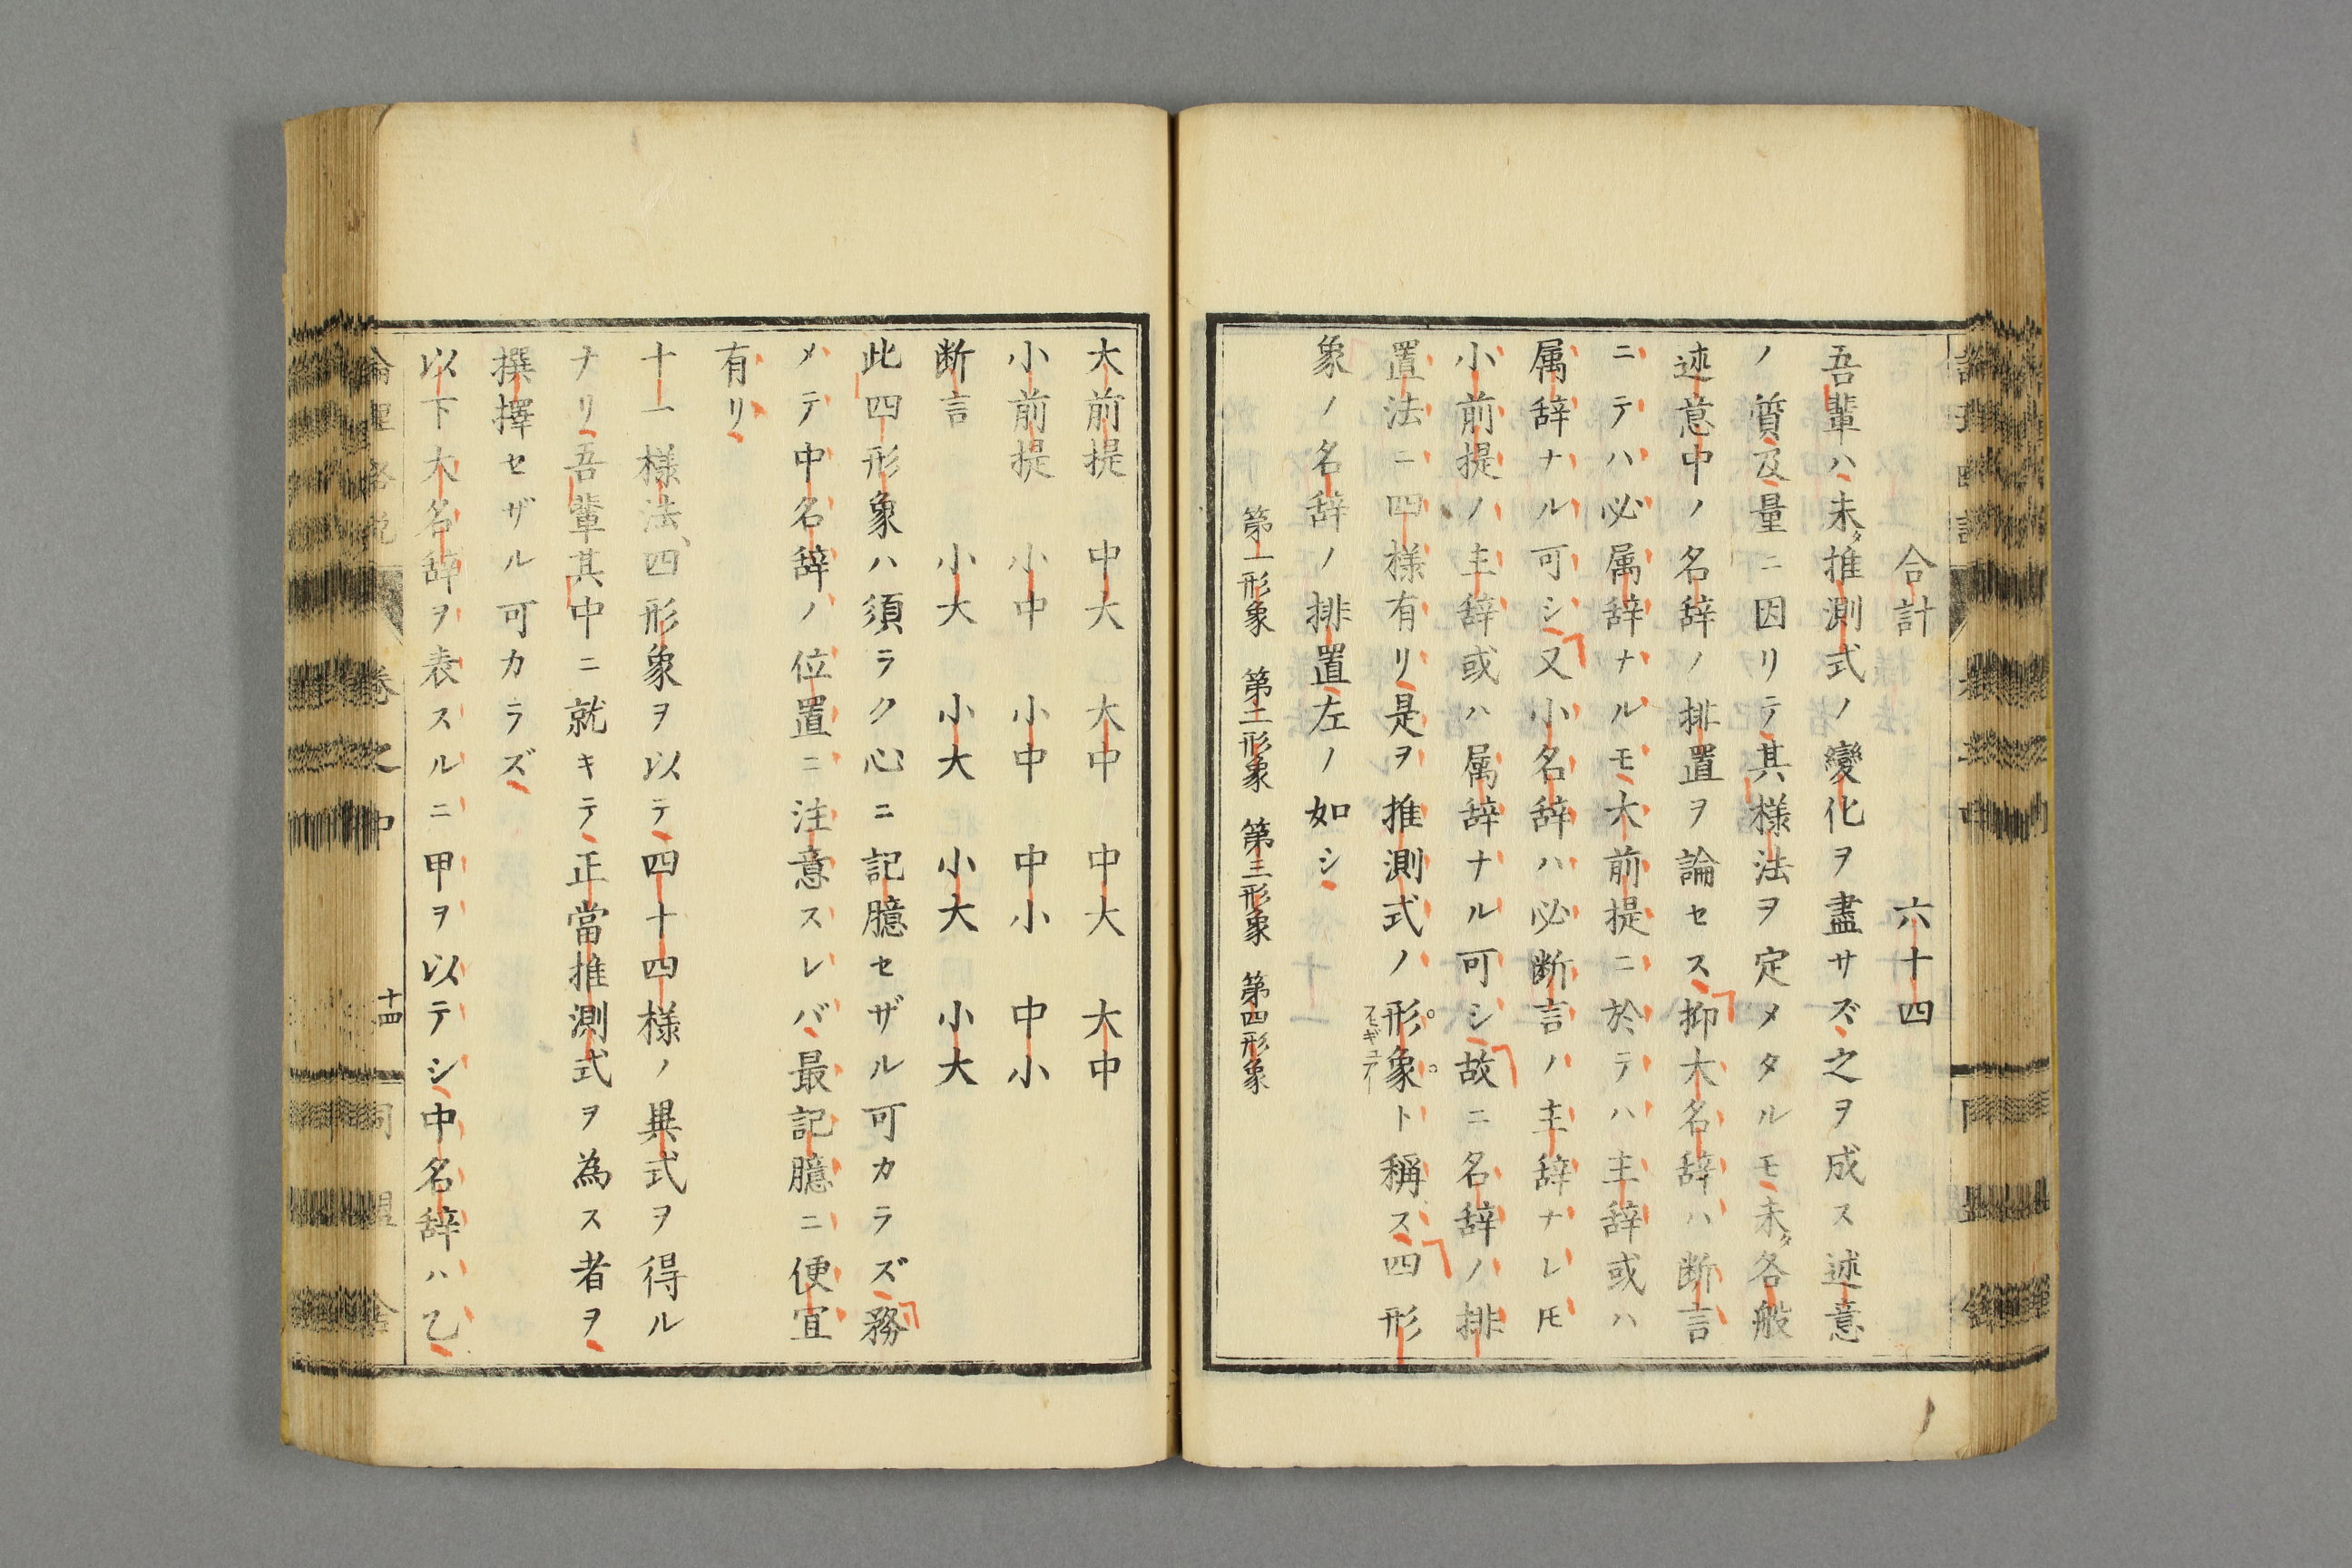 合計 六十四
吾輩ハ未タ推測式ノ變化ヲ盡サズ之ヲ成ス述意
ノ質及量ニ因リテ其様法ヲ定メタルモ未タ各般
述意中ノ名辞ノ排置ヲ論セス抑大名辞ハ断言
ニテハ必属辞ナルモ大前提ニ於テハ主辞或ハ
属辞ナル可シ又小名辞ハ必断言ノ主辞ナレ𪜈
小前提ノ主辞或ハ属辞ナル可シ故ニ名辞ノ排
置法ニ四様有リ是ヲ推測式ノ形象ト稱ス四形
象ノ名辞ノ排置左ノ如シ
第一形象 第二形象 第三形象 第四形象
大前提 中大 大中 中大 大中
小前提 小中 小中 中小 中小
断言 小大 小大 小大 小大
此四形象ハ須ラク心ニ記臆セザル可カラズ務
メテ中名辞ノ位置ニ注意スレバ最記臆ニ便宜
有リ
十一様法四形象ヲ以テ四十四様ノ異式ヲ得ル
ナリ吾輩其中ニ就キテ正當推測式ヲ為ス者ヲ
撰擇セザル可カラズ
以下大名辞ヲ表スルニ甲ヲ以テシ中名辞ハ乙
卷之中 十四